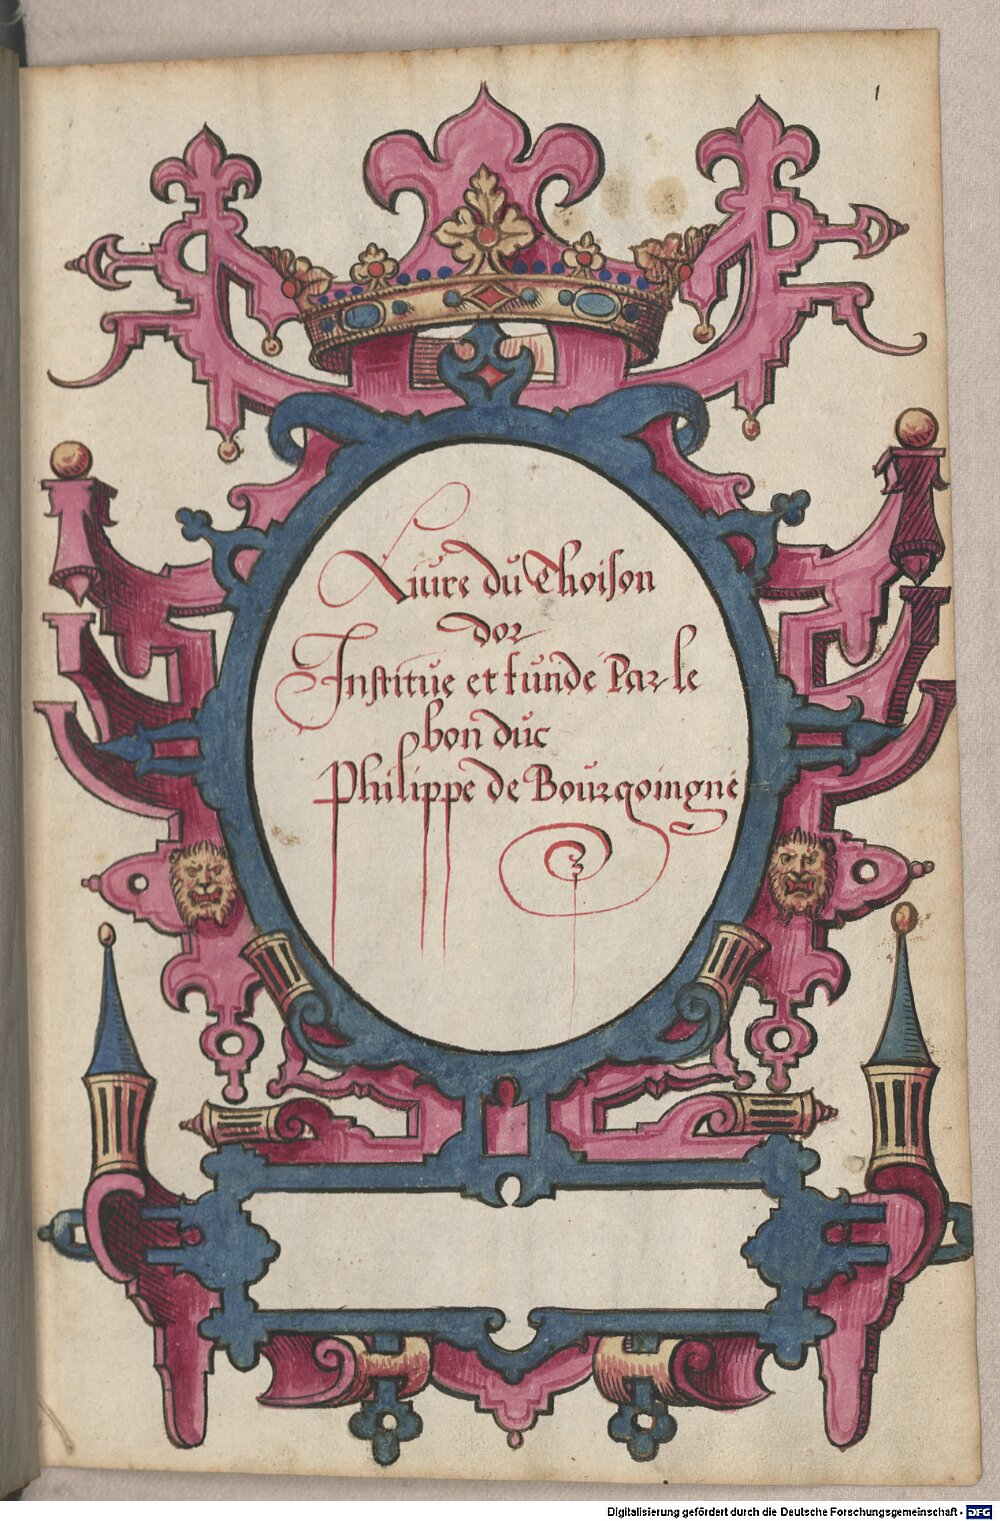 1
Liure du Thoison
dor
Institue et funde Par le
bon duc
Philippe de Bourgoingne
Digitalisierung gefördert durch die Deutsche Forschungsgemeinschaft - DFG